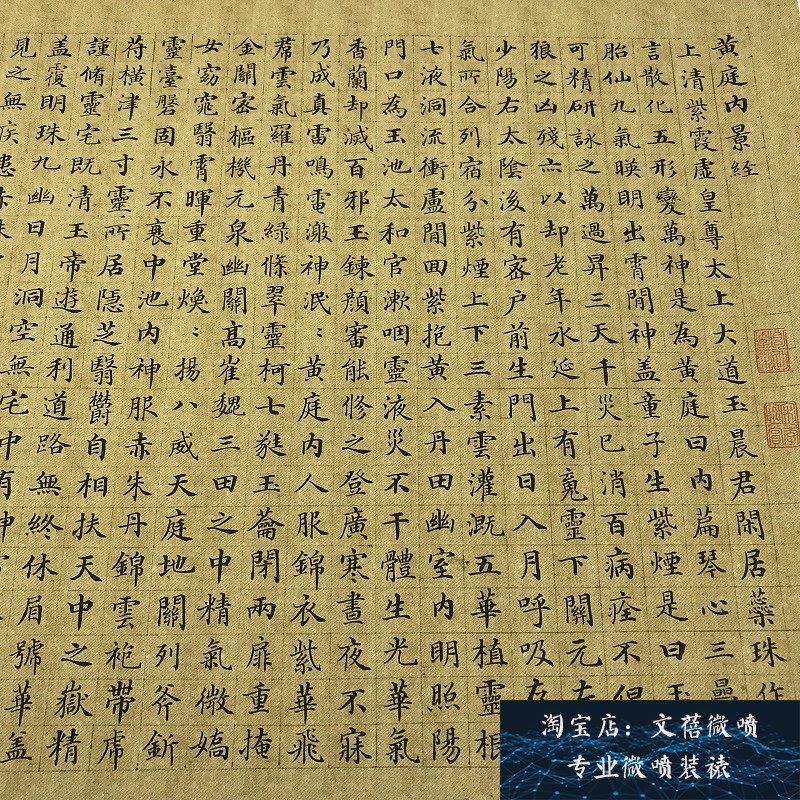 黃庭內景經
上清紫霞虛皇尊太上大道玉晨君閑居蘂珠作
言散化五形變萬神是為黃庭曰內篇琴心三疊
胎仙九氣暎明出霄間神盖童子生紫煙是曰玉
可精研詠之萬過昇三天千災已消百病痊不但
狼之凶殘亦以却老年永延上有䰟靈下關元左
少陽右太陰後有密戶前生門出日入月呼吸
氣所合列宿分紫煙上下三素雲灌溉五華植靈根
七液洞流衝廬間回紫抱黃入丹田幽室內明照陽
門口為玉池太和官漱咽靈液災不干體生光華氣
香蘭却滅百邪玉鍊顏審能修之登廣寒晝夜不寐
乃成真雷鳴電激神泯〻黃庭內人服錦衣紫華飛
帬雲氣羅丹青綠條翠靈柯七蕤玉籥閉兩扉重掩
金關密樞機元泉幽關高崔巍三田之中精氣微嬌
女窈窕翳霄暉重堂煥〻揚八威天庭地關列斧釿
靈臺磐固永不衰中池內神服赤朱丹錦雲袍帶虎
符橫津三寸靈所居隱芝翳鬱自相扶天中之嶽精
謹脩靈宅既清玉帝遊通利道路無終休眉號華盖
盖覆明珠九幽日月洞空無宅中有神
見之無疾患赤珠
淘宝店：文蓓微喷
专业微喷装裱